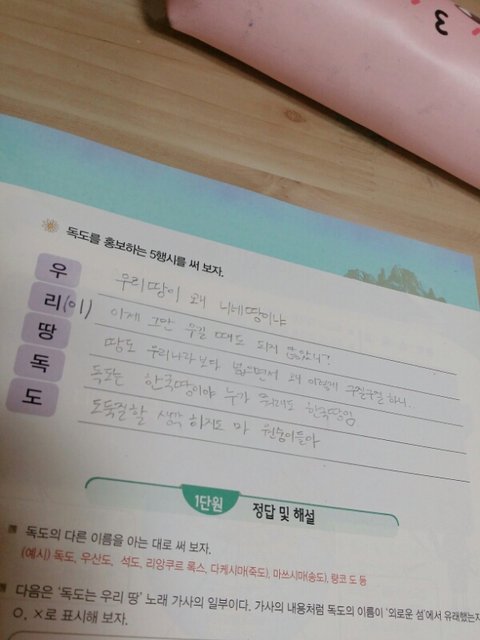 독도를 홍보하는 5행시를 써 보자.
우 우리땅이 왜 니네땅이냐
리(이) 이제 그만 우길 때도 되지 않았니?
땅 땅도 우리나라보다 넓으면서 왜 이렇게 구질구질 하니..
독 독도는 한국땅이야 누가 뭐래도 한국땅임
도 도둑질할 생각 하지도 마 원숭이들아
1단원 정답 및 해설
독도의 다른 이름을 아는 대로 써 보자.
(예시) 독도, 우산도, 석도, 리앙쿠르 록스, 다케시마(죽도), 마쓰시마(송도), 량코 도 등
다음은 '독도는 우리 땅' 노래 가사의 일부이다. 가사의 내용처럼 독도의 이름이 '외로운 섬'에서 유래했는지
O, ×로 표시해 보자.